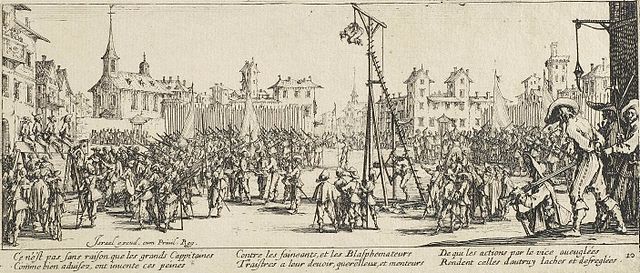 Israel excud. cum Privil. Reg.
Ce n'est pas sans raison que les grands Cappitaines
Comme bien aduisez, ont inuenté ces peines
Contre les faineants, et les Blasphemateurs
Traistres a leur deuoir, querelleux, et menteurs
De qui les actions par le vice aueuglées
Rendent celles d'autruy laches et desreglées